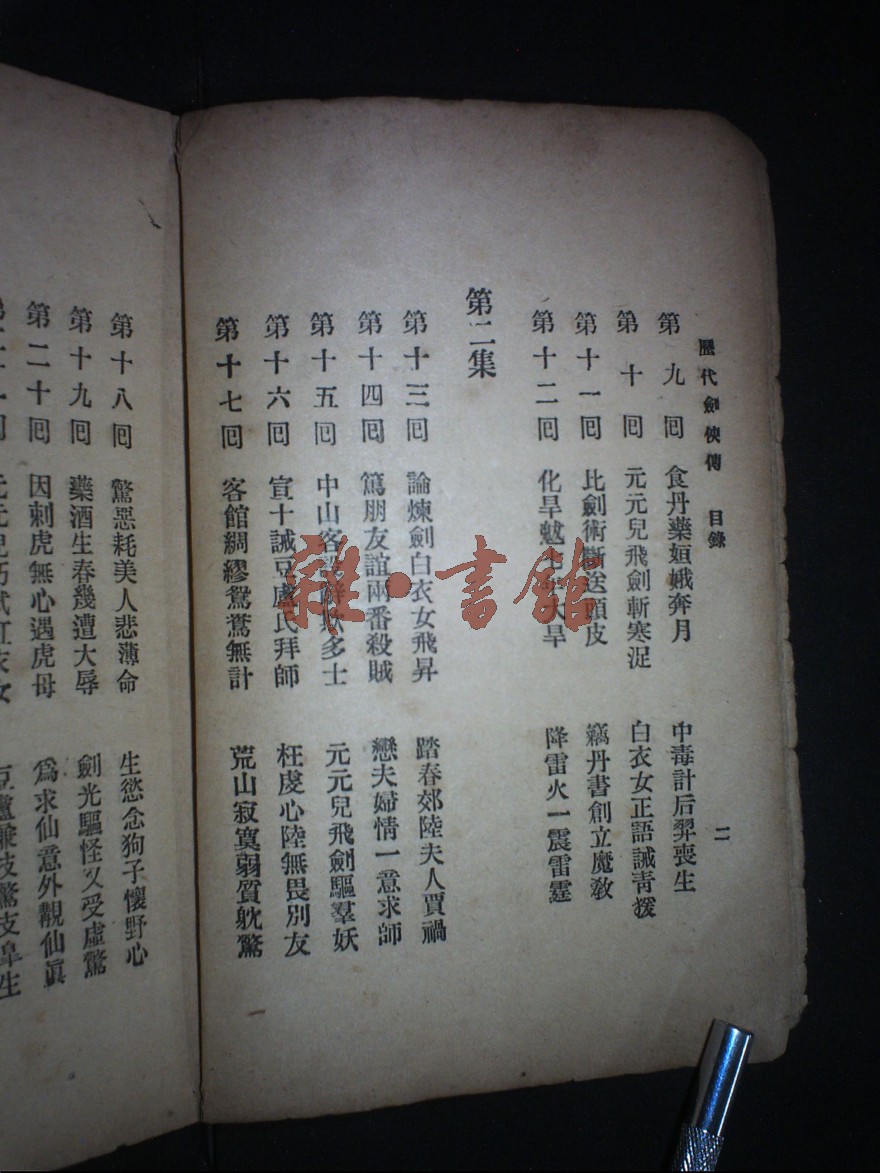 歷代劍俠傳　目錄　二
第九回　食丹藥姮娥奔月　中毒計后羿喪生
第十回　元元兒飛劍斬寒浞　白衣女正語誡青猨
第十一回　比劍術斷送頭皮　竊丹書創立魔敎
第十二回　化旱魃大旱　降雷火一震雷霆
第二集
第十三回　論煉劍白衣女飛昇　踏春郊陸夫人賈禍
第十四回　篤朋友誼兩番殺賊　戀夫婦情一意求師
第十五回　中山客多士　元元兒飛劍驅羣妖
第十六回　宣十誡豆盧氏拜師　枉虔心陸無畏別友
第十七回　客館綢繆鴛鴦無計　荒山寂寞弱質躭驚
第十八回　驚惡耗美人悲薄命　生慾念狗子懷野心
第十九回　藥酒生春幾遭大辱　劍光驅怪又受虛驚
第二十回　因刺虎無心遇虎母　爲求仙意外覯仙眞
雜·書館